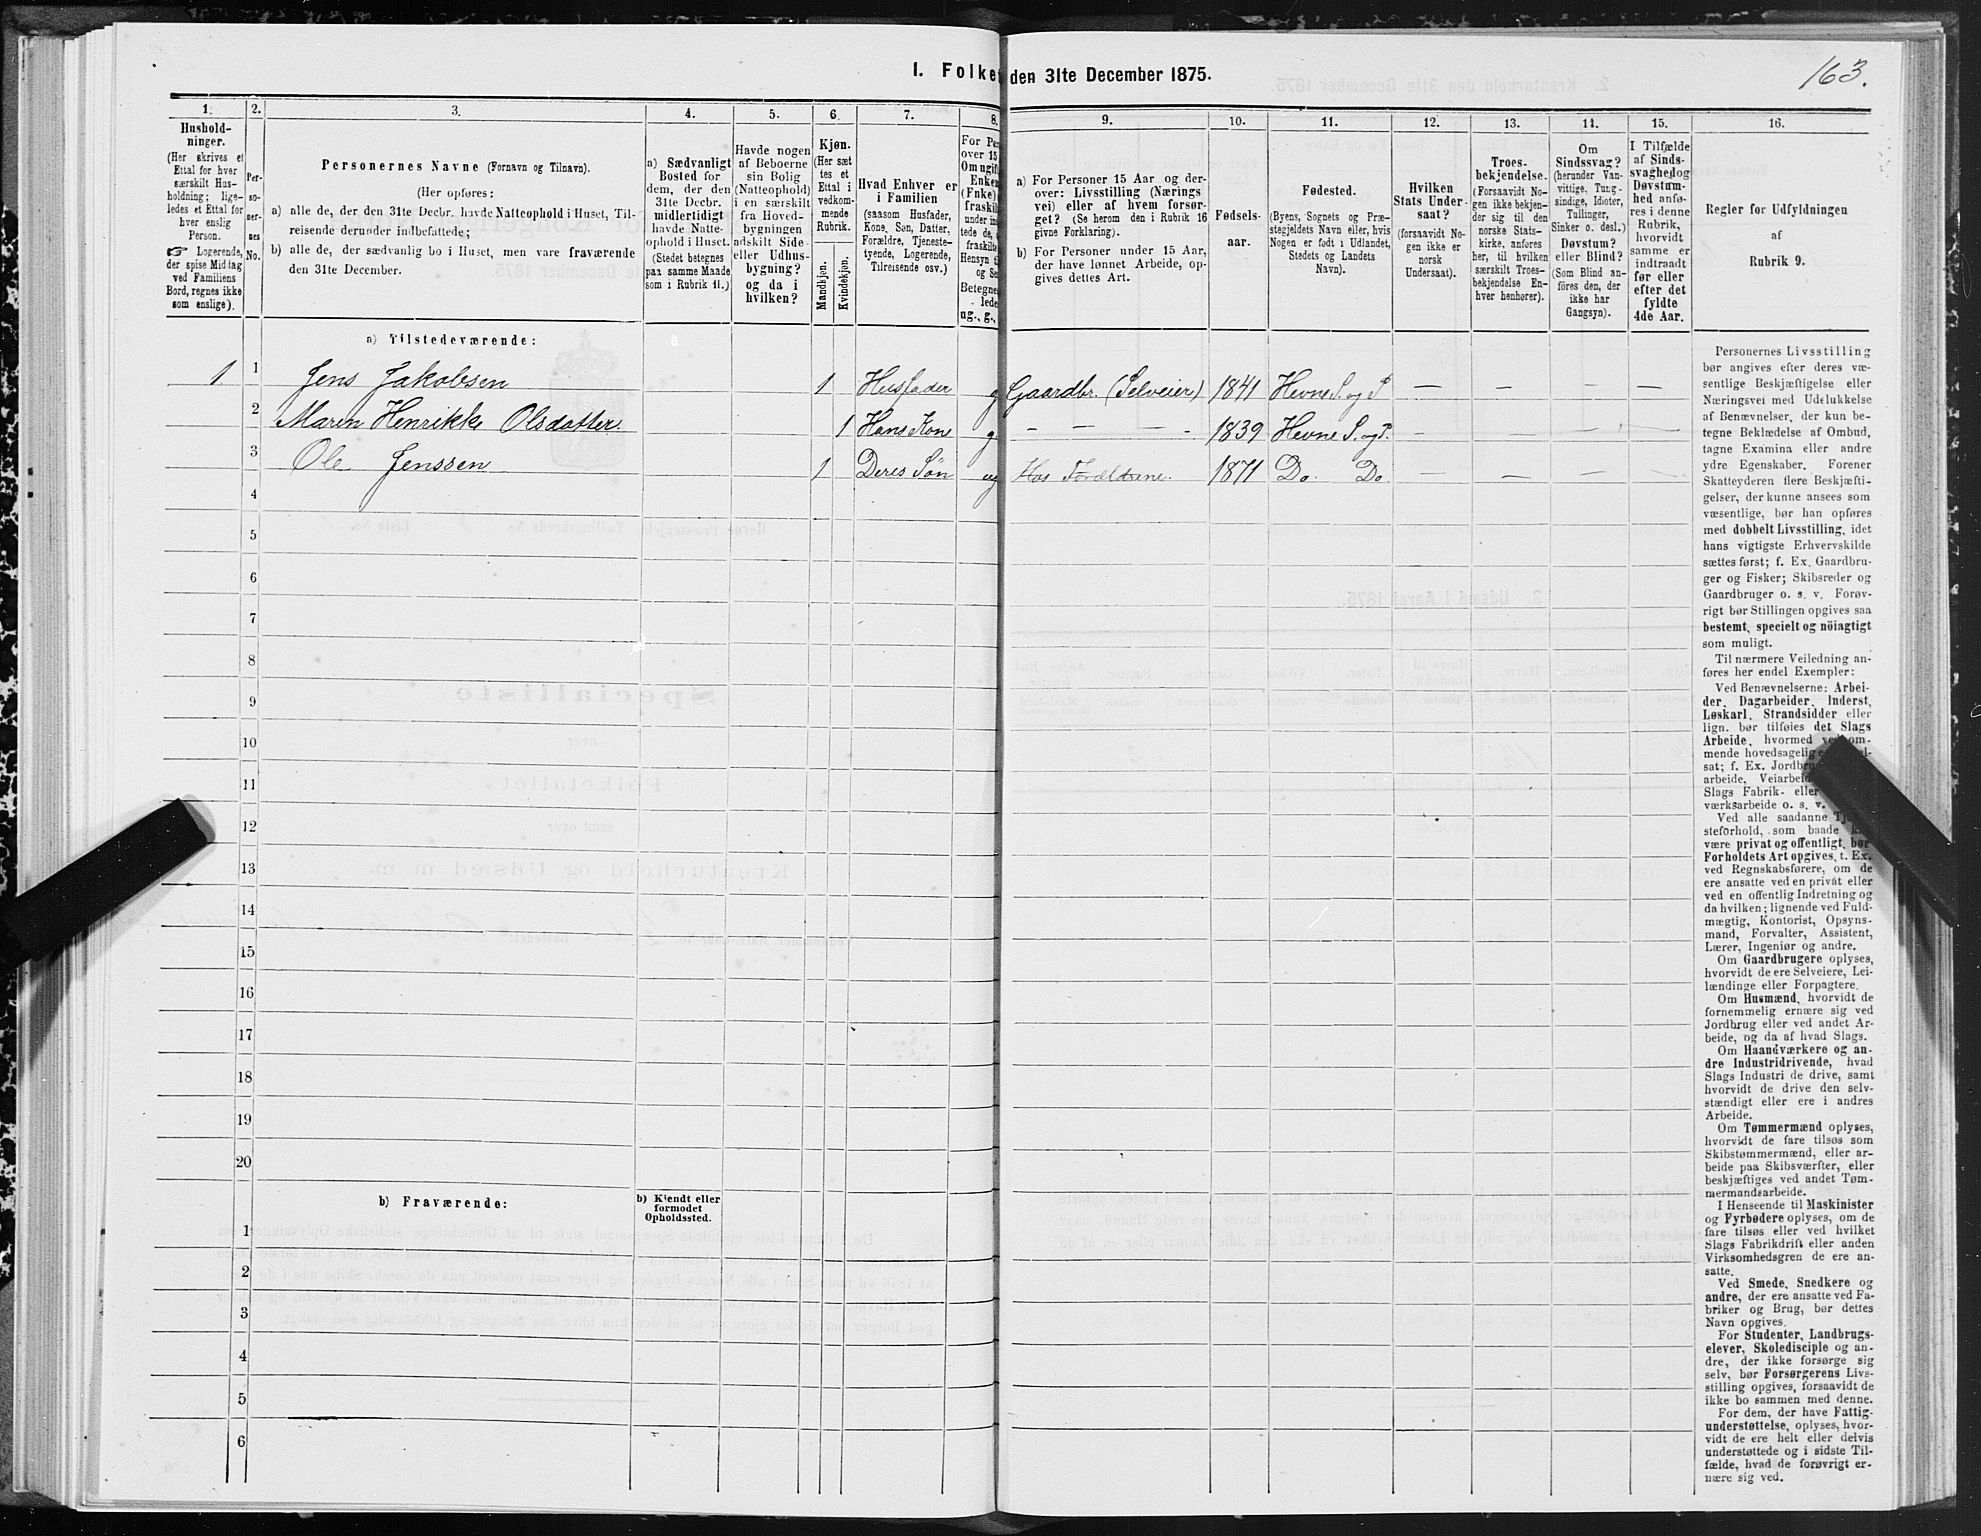 163.
I. Folket
den 31te December 1875.
1.
2.
3.
4.
5.
6.
7.
8.
9.
10.
11.
12.
13.
14.
15.
16.
Hushold-
ninger.
(Her skrives et
Ettal for hver
særskilt Hus-
holdning; lige-
ledes et Ettal for
hver enslig
Person.
☞ Logerende,
der spise Middag
ved Familiens
Bord, regnes ikke
som enslige).
Per-
so-
ner-
nes
No.
Personernes Navne (Fornavn og Tilnavn).
(Her opføres:
a) alle de, der den 31te Decbr. havde Natteophold i Huset, Til-
reisende derunder indbefattede;
b) alle de, der sædvanlig bo i Huset, men vare fraværende
den 31te December.
a) Sædvanligt
Bosted for
dem, der den
31te Decbr.
midlertidigt
havde Natte-
ophold i Huset.
(Stedet betegnes
paa samme Maade
som i Rubrik 11.)
Havde nogen
af Beboerne
sin Bolig
(Natteophold)
i en særskilt
fra Hoved-
bygningen
adskilt Side-
eller Udhus-
bygning?
og da i
hvilken?
Kjøn.
(Her sæt-
tes et
Ettal i
vedkom-
mende
Rubrik.
Mandkjøn.
Kvindekjøn.
Hvad Enhver er
i Familien
(saasom Husfader,
Kone, Søn, Datter,
Forældre, Tjeneste-
tyende, Logerende,
Tilreisende osv.)
For Per
over 15
Om ugift
Enken
(Fnke)
fraskilt
under in
tede de,
fraskilte
Hensyn ti
og Se
Betegne
lede
ug., g.,
a) For Personer 15 Aar og der-
over: Livsstilling (Nærings
vei) eller af hvem forsør-
get? (Se herom den i Rubrik 16
givne Forklaring).
b) For Personer under 15 Aar,
der have lønnet Arbeide, op-
gives dettes Art.
Fødsels-
aar.
Fødested.
(Byens, Sognets og Præ-
stegjeldets Navn eller, hvis
Nogen er født i Udlandet,
Stedets og Landets
Navn).
Hvilken
Stats Under-
saat?
(forsaavidt No-
gen ikke er
norsk
Undersaat).
Troes-
bekjendelse.
(Forsaavidt No-
gen ikke bekjen-
der sig til den
norske Stats-
kirke, anføres
her, til hvilken
særskilt Troes-
bekjendelse En-
hver henhører).
Om
Sindssvag?
(herunder Van-
vittige, Tung-
sindige, Idioter,
Tullinger,
Sinker o. desl.)
Døvstum?
eller Blind?
(Som Blind an-
föres den, der
ikke har
Gangsyn).
I Tilfælde
af Sinds-
svaghed og
Døvstum-
hed anfø-
res i denne
Rubrik,
hvorvidt
samme er
indtraadt
før eller
efter det
fyldte
4de Aar.
Regler for Udfyldningen
af
Rubrik 9.
a) Tilstedeværende:
1 1 Jens Jakobsen 1 Husfader g Gaardbr. (Selveier) 1841 Hevne S. og P — — — —
2 Maren Henrikke Olsdatter 1 Hans Kone g — — — 1839 Hevne S. og P. — — — —
3 Ole Jenssen 1 Deres Søn ug Hos Forældrene. 1871 Do. Do. — — — —
4
5
6
7
8
9
10
11
12
13
14
15
16
17
18
19
20
b) Fraværende:
b) Kjendt eller
formodet
Opholdssted.
1
2
3
4
5
6
Personernes Livsstilling
bør angives efter deres væ-
sentlige Beskjæftigelse eller
Næringsvei med Udelukkelse
af Benævnelser, der kun be-
tegne Beklædelse af Ombud,
tagne Examina eller andre
ydre Egenskaber. Forener
Skatteyderen flere Beskjæfti-
gelser, der kunne ansees som
væsentlige, bør han opføres
med dobbelt Livsstilling, idet
hans vigtigste Erhvervskilde
sættes først; f. Ex. Gaardbru-
ger og Fisker; Skibsreder og
Gaardbruger o. s. v. Forøv-
rigt bør Stillingen opgives saa
bestemt, specielt og nöiagtigt
som muligt.
Til nærmere Veiledning an-
føres her endel Exempler:
Ved Benævnelserne: Arbei-
der, Dagarbeider, Inderst,
Løskarl, Strandsidder eller
lign. bør tilføies det Slags
Arbeide, hvormed vedkom-
mende hovedsagelig
sat; f. Ex. Jordbr
arbeide, Veiarbeid
Slags Fabrik- eller
værksarbeide o. s. v.
Ved alle saadanne
steforhold, som baade
være privat og offentligt, bør
Forholdets Art opgives, t. Ex.
ved Regnskabsførere, om de
ere ansatte ved en privat eller
ved en offentlig Indretning og
da hvilken; lignende ved Fuld-
mægtig, Kontorist, Opsyns-
mand, Forvalter, Assistent,
Lærer, Ingeniør og andre.
Om Gaardbrugere oplyses,
hvorvidt de ere Selveiere, Lei-
lændinge eller Forpagtere.
Om Husmænd, hvorvidt de
fornemmelig ernære sig ved
Jordbrug eller ved andet Ar-
beide, og da af hvad Slags.
Om Haandværkere og an-
dre Industridrivende, hvad
Slags Industri de drive, samt
hvorvidt de drive den selv-
stændigt eller ere i andres
Arbeide.
Om Tømmermænd oplyses,
hvorvidt de fare tilsøs som
Skibstømmermænd, eller ar-
beide paa Skibsværfter, eller
beskjæftiges ved andet Tøm-
mermandsarbeide.
I Henseende til Maskinister
og Fyrbødere oplyses, om de
fare tilsøs eller ved hvilket
Slags Fabrikdrift eller anden
Virksomhedsgren de ere an-
satte.
Ved Smede, Snedkere og
andre, der ere ansatte ved Fa-
briker og Brug, bør dettes
Navn opgives.
For Studenter, Landbrugs-
elever, Skoledisciple og an-
dre, der ikke forsørge sig
selv, bør Forsørgerens Livs-
stilling opgives, forsaavidt de
ikke bo sammen med denne.
For dem, der have Fattig-
understøttelse, oplyses, hvor-
vidt de ere helt eller delvis
understøttede og i sidste Til-
fælde, hvad de forøvrigt er-
nære sig ved.